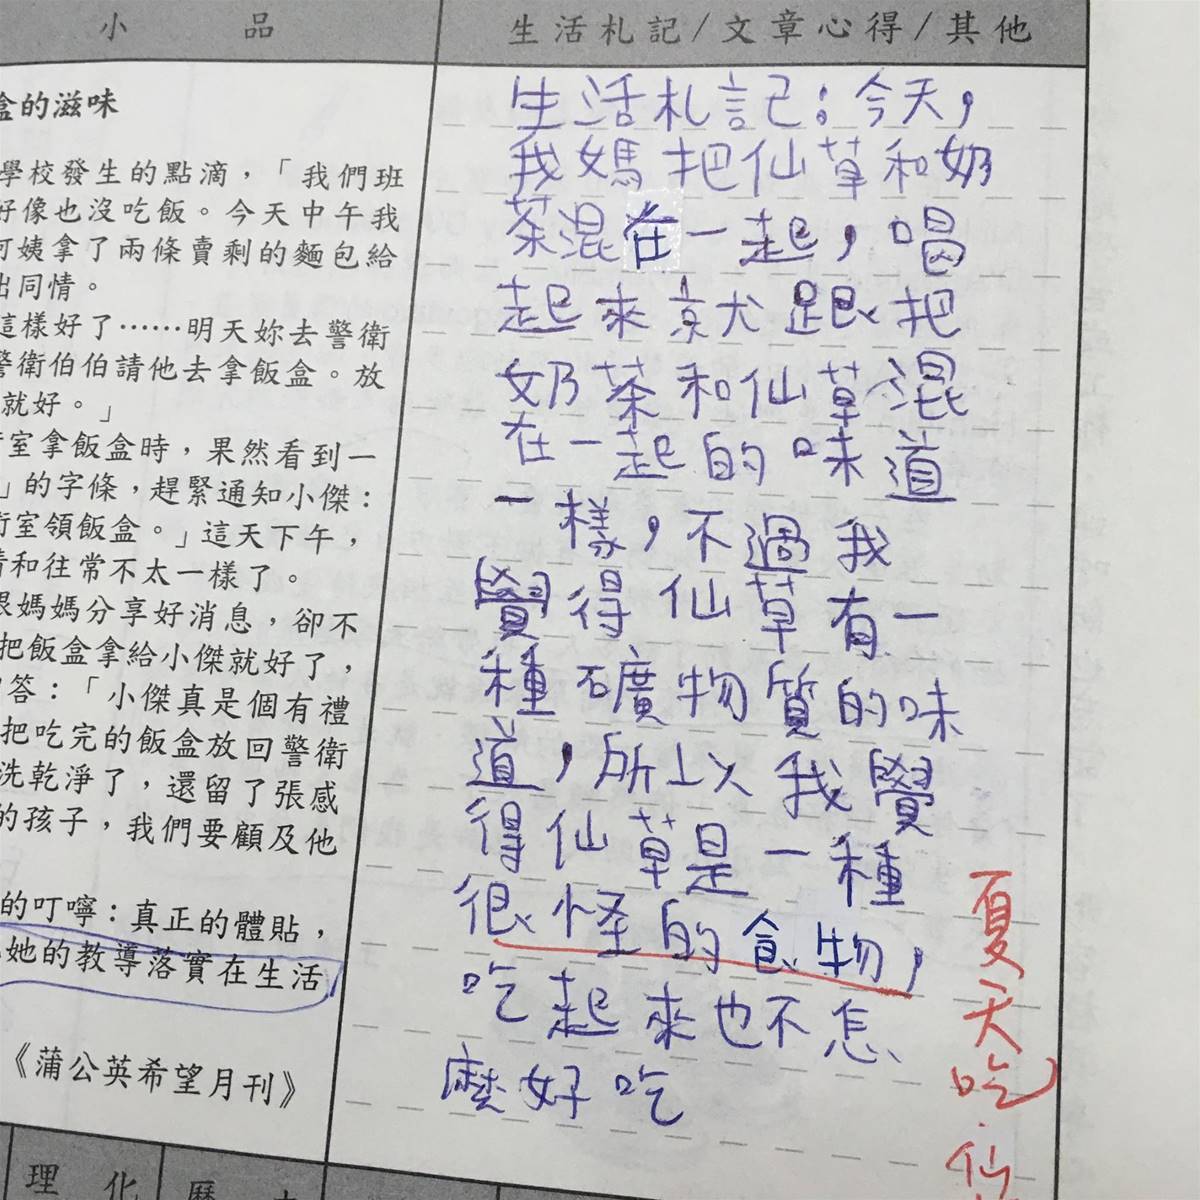 小品
生活札記/文章心得/其他
盒的滋味
學校發生的點滴，「我們班
好像也沒吃飯。今天中午我
阿姨拿了兩條賣剩的麵包給
出同情。
這樣好了⋯⋯明天妳去警衛
警衛伯伯請他去拿飯盒。放
就好。」
室拿飯盒時，果然看到一
」的字條，趕緊通知小傑：
衛室領飯盒。」這天下午，
情和往常不太一樣了。
跟媽媽分享好消息，卻不
把飯盒拿給小傑就好了，
回答：「小傑真是個有禮
把吃完的飯盒放回警衛
洗乾淨了，還留了張感
的孩子，我們要顧及他
的叮嚀：真正的體貼，
她的教導落實在生活
《蒲公英希望月刊》
理化
歷
生活札記：今天，
我媽把仙草和奶
茶混在一起，喝
起來就跟把
奶茶和仙草混
在一起的味道
一樣，不過我
覺得仙草有一
種礦物質的味
道，所以我覺
得仙草是一種
很怪的食物，
吃起來也不怎
麼好吃
夏天吃仙